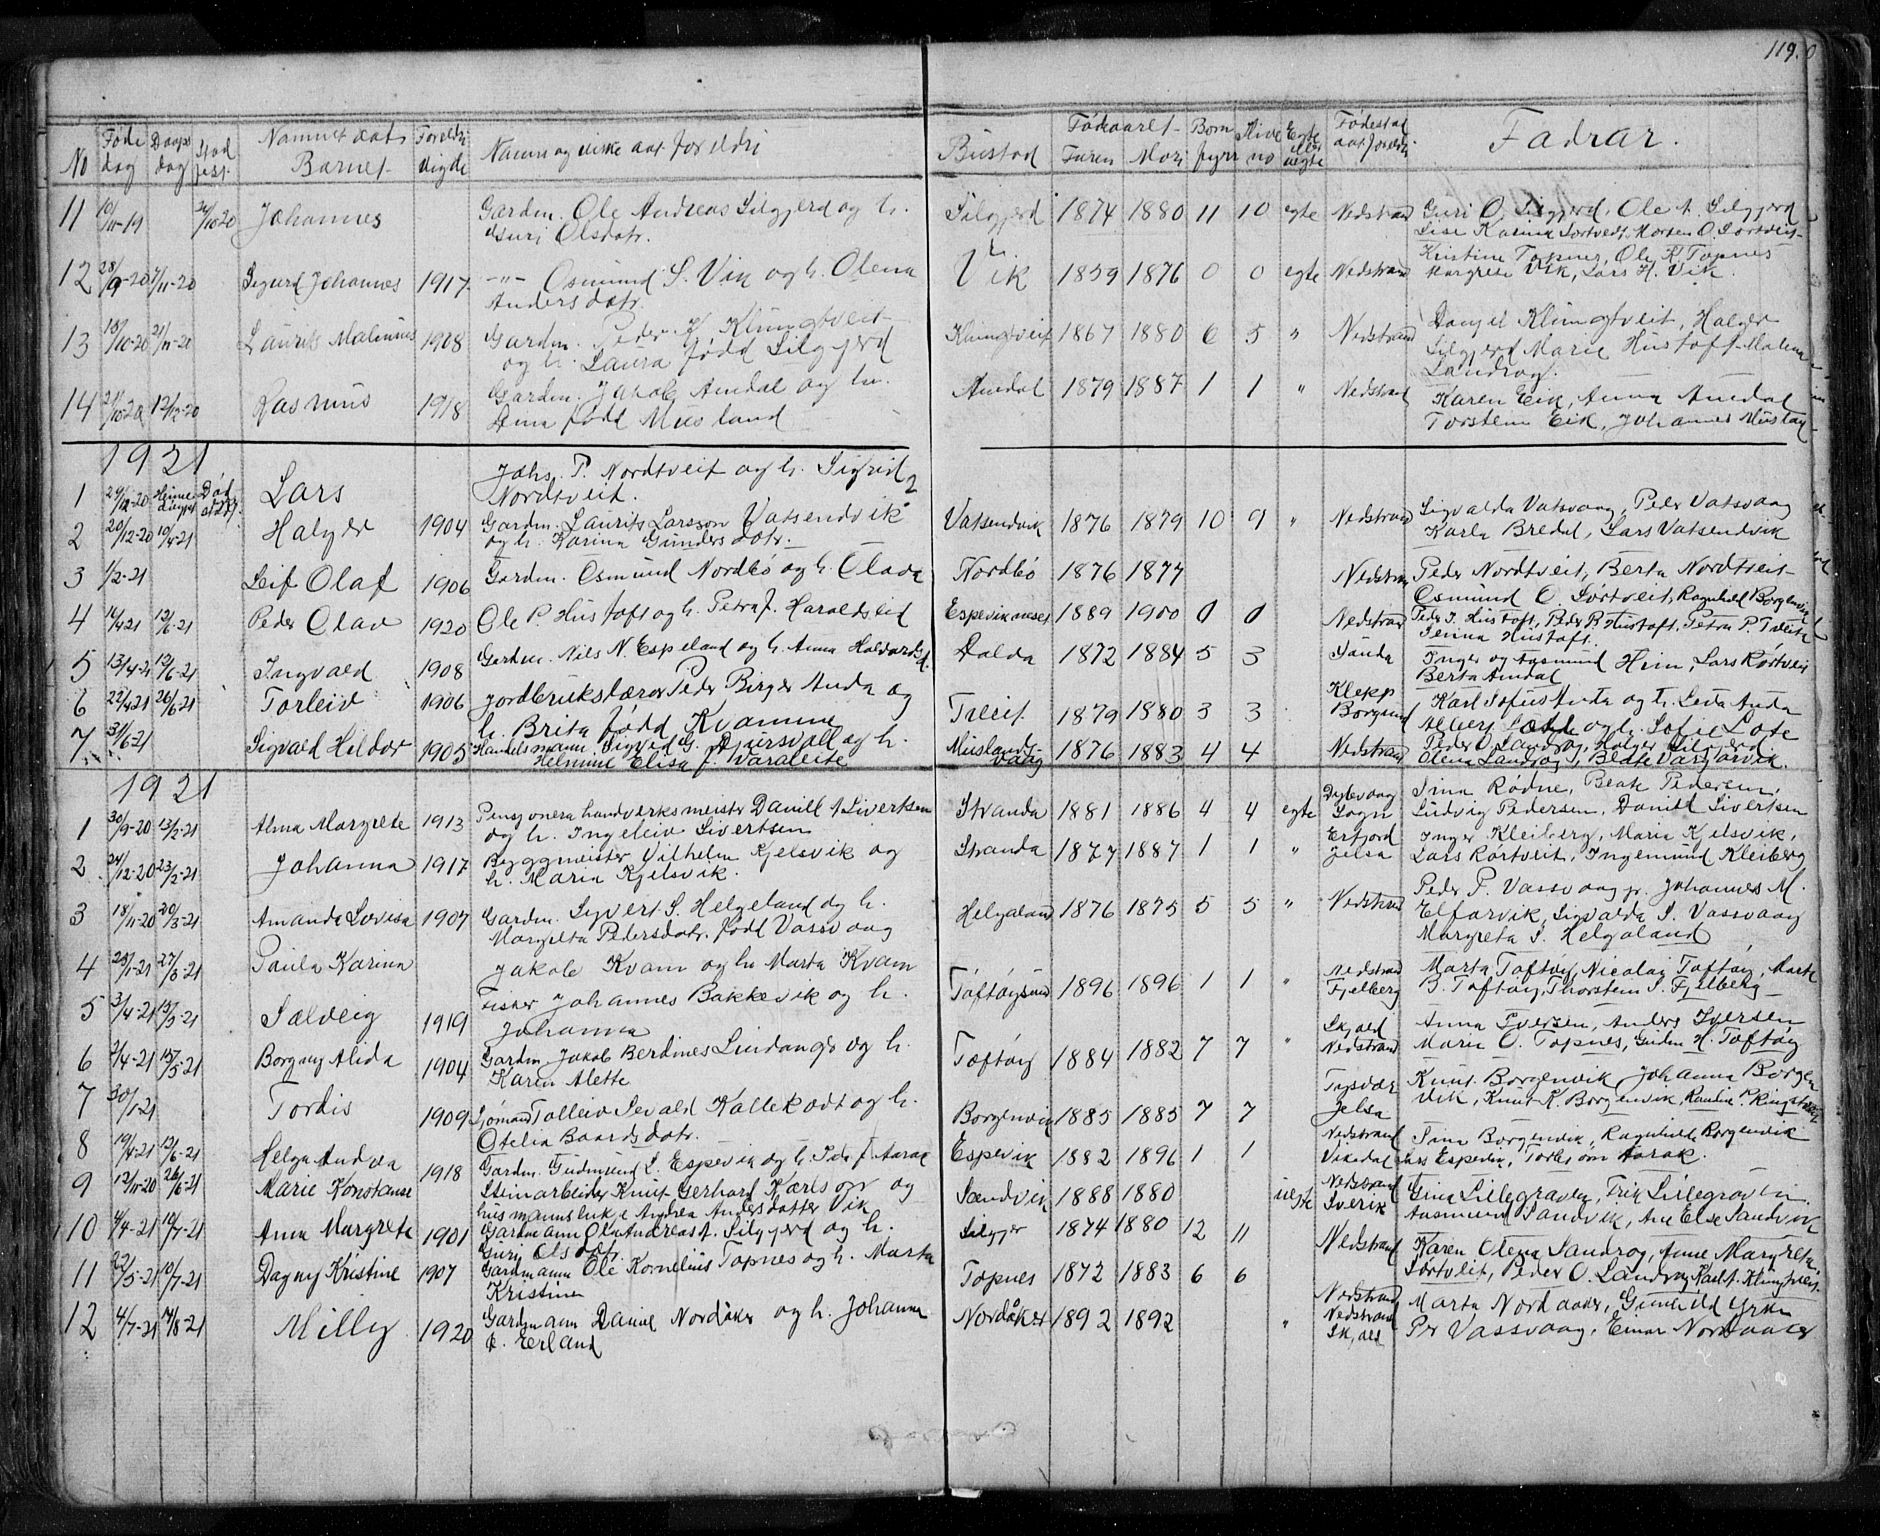 119.
No Føde dag Daaps dag Stad fest. Namnet aat Barnet Foreldri vigde Namn og virke aat foreldri Bustad Fødeaaret Faren Mori Born fyrr Live no Egte eller uegte Fødestad aat foreldri Fadrar.
11 10/11-19 Johannes Gardm. Ole Andreas Silgjerd og h. Silgjerd 1874 1880 11 10 egte Nedstrand Guri O. Silgjerd, Ole A. Silgjerd
Guri Olsdotr. Lise Karina Sørtveit, Morten O. Sørtveit
12 28/9-20 7/11-20 Sigurd Johannes 1917 -"- Osmund S. Vik og h. Olena Vik 1859 1876 0 0 egte Nedstrand Kristine Topnes, Ole K. Topnes
Andersdotr. Margrete Vik, Lars H. Vik.
13 18/10-20 21/11-20 Laurits Malinius 1908 Gardm. Peder K. Klungtveit Klungtveit 1867 1880 6 5 " Nedstrand Danjel Klungtveit, Halger
og h. Laura fødd Silgjerd Silgjerd Marie Hustoft Malena
Landrøg.
14 21/10-20 12/12-20 Rasmus 1918 Gardm. Jakob Amdal og h. Amdal 1879 1887 1 1 " Nedstrand Karen Eik, Anna Amdal
fødd Musland Torstein Eik, Johannes
1921
1 29/12-20 Heime døypt Død Lars Johs. P. Nordtveit og h. Sigrid
Nordtveit.
2 20/12-20 10/4-21 Halger 1904 Gardm. Laurits Larsson Vatsendvik Vatsendvik 1876 1879 10 9 " Nedstrand Sigvalda Vatsvaag, Peder Vatsvaag
og h. Karina Gundersdotr. Karla Bredal, Lars Vatsendvik
3 1/2-21 Leif Olaf 1906 Gardm. Osmund Nordbø og h. Olava Nordbø 1876 1877 Nedstrand Peder Nordtveit, Berta Nordtveit
Osmund O. Sørtveit, Ragnhild Borgenvik
4 14/4 21 12/6-21 Peder Olav 1920 Ole P. Hustoft og h. Petra f. Haraldseid Espevikneset 1889 1900 0 0 Nedstrand Peder J. Hustoft, Peder B Hustoft, Petra P. Tveit
Jenna Hustoft.
5 13/4-21 12/6-21 Ingvald 1908 Gardm. Nils N. Espeland og h. Anna Halvardsd. Dalda 1872 1884 5 3 Inger og Aasmund Heim, Lars Rørtveit
Berta Amdal
6 22/4 21 26/6 21 Torleiv 1906 Jordbrukslærer Peder Birger Anda og Tveit 1879 1880 3 3 Klepp Karl Sofus Anda og h. Lea Anda
h. Brita fødd Kvamme Borgund Alberg Løtde og h. Sofie Lote
7 31/6-21 Sigvald Hildor 1905 Handelsmann Sigvd G. Djursvoll og h. Muslandsvaag 1876 1883 4 4 Nedstrand Peder O. Landrøg, Halger Silgjerd
Helmine Elisa f. Varaleite Olena Landrøg, Beate Vargarvik.
1921
1 30/9-20 13/2-21 Alma Margrete 1913 Pensjonera handverksmeister Daniel A Sivertsen Stranda 1881 1886 4 4 egte Sina Rødne, Beate Pedersen,
og h. Ingeleiv Sivertsen Sogn Ludvig Pedersen, Daniel Sivertsen
2 24/12-20 23/2-21 Johanna 1917 Byggmeister Vilhelm Kjelsvik og Stranda 1877 1887 1 1 " Erfjord Inger Kleiberg, Maria Kjelsvik,
h. Maria Kjelsvik. Jelsa Lars Rørtveit, Ingemund Kleiberg
3 18/11-20 20/3-21 Amanda Lovisa 1907 Gardm. Syvert S. Helgeland og h. Helgaland 1876 1875 5 5 " Nedstrand Peder P. Vassvaag jr. Johannes M.
Margreta Pedersdotr. fødd Vassvaag Elfarvik, Sigvalda S. Vassvaag
Margreta S. Helgaland
4 25/1-21 27/3-21 Paula Karina Jakob Kvam og h. Marta Kvam Toftøysund 1896 1896 1 1 " Nedstrand Marta Toftøy, Nicolai Toftøy, Marta
Fjelberg B. Toftøy, Thorstein S. Fjelberg
5 3/4-21 15/5-21 Sælveig 1919 Fisker Johannes Bakkevik og h.
Johanna Skjold Anna Iversen, Anders Iversen
6 2/4-21 15/5-21 Borgny Alida 1904 Gardm. Jakob Berdines Lindanger og h. Toftøy 1884 1882 7 7 " Nedstrand Maria O. Topnes, Guden H. Toftøy
Karen Alette
7 30/1-21 Tordis 1909 Sjømann Tolleiv Sevald Kallekodt og h. Borgenvik 1885 1885 7 7 Tysvær Knut Borgenvik Johanna Borgen
Otelia Baardsdotr. Jelsa vik, Knut K. Borgenvik,
8 19/4-21 12/6-21 Helga Andrea 1918 Gardm. Gudmund L. Espevik og h. f. Aarak Espevik 1882 1896 1 1 Nedstrand Sina Borgenvik, Ragnhild Borgenvik
Vikedal Lars Espevik, Torbjørn Aarak.
9 12/11-20 26/6-21 Marie Konstanse Steinarbeider Knut Gerhard Karlson og Sandvik 1888 1880 uegte Nedstrand Gina Lillegraven, Lillegraven
husmannsenkje Andrea Andersdotter Vik Sverik Aasmund Sandvik, Ane Else Sandvik
10 4/4-21 10/7-21 Anna Margreta 1901 Gardmann Ole Andreas A. Silgjerd og h. Silgjer 1874 1880 12 11 Nedstrand Karen Olena Landrøg, Anne Margreta
Guri Olsdotr. Sørtveit, Peder O. Landrøg, Karl A. Klungtveit
11 22/5-21 10/7-21 Dagny Kristine 1907 Gardmann Ole Kornelius Topnes og h. Marta Topnes 1872 1883 6 6
Kristine Nedstrand
12 4/7-21 7/8-21 Milly 1920 Gardmann Daniel Nordåker og h. Johanna Nordåker 1892 1892 " Nedstrand Marta Nordaaker, Gunhild Yrke
f. Erland Skjold Per Vassvaag, Einar Nordaaker